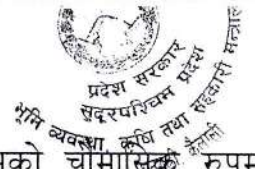 प्रदेश सरकार
सुदूरपश्चिम प्रदेश
भूमि व्यवस्था, कृषि तथा सहकारी मन्त्रालय
कैलाली
चौमासिक रुपम